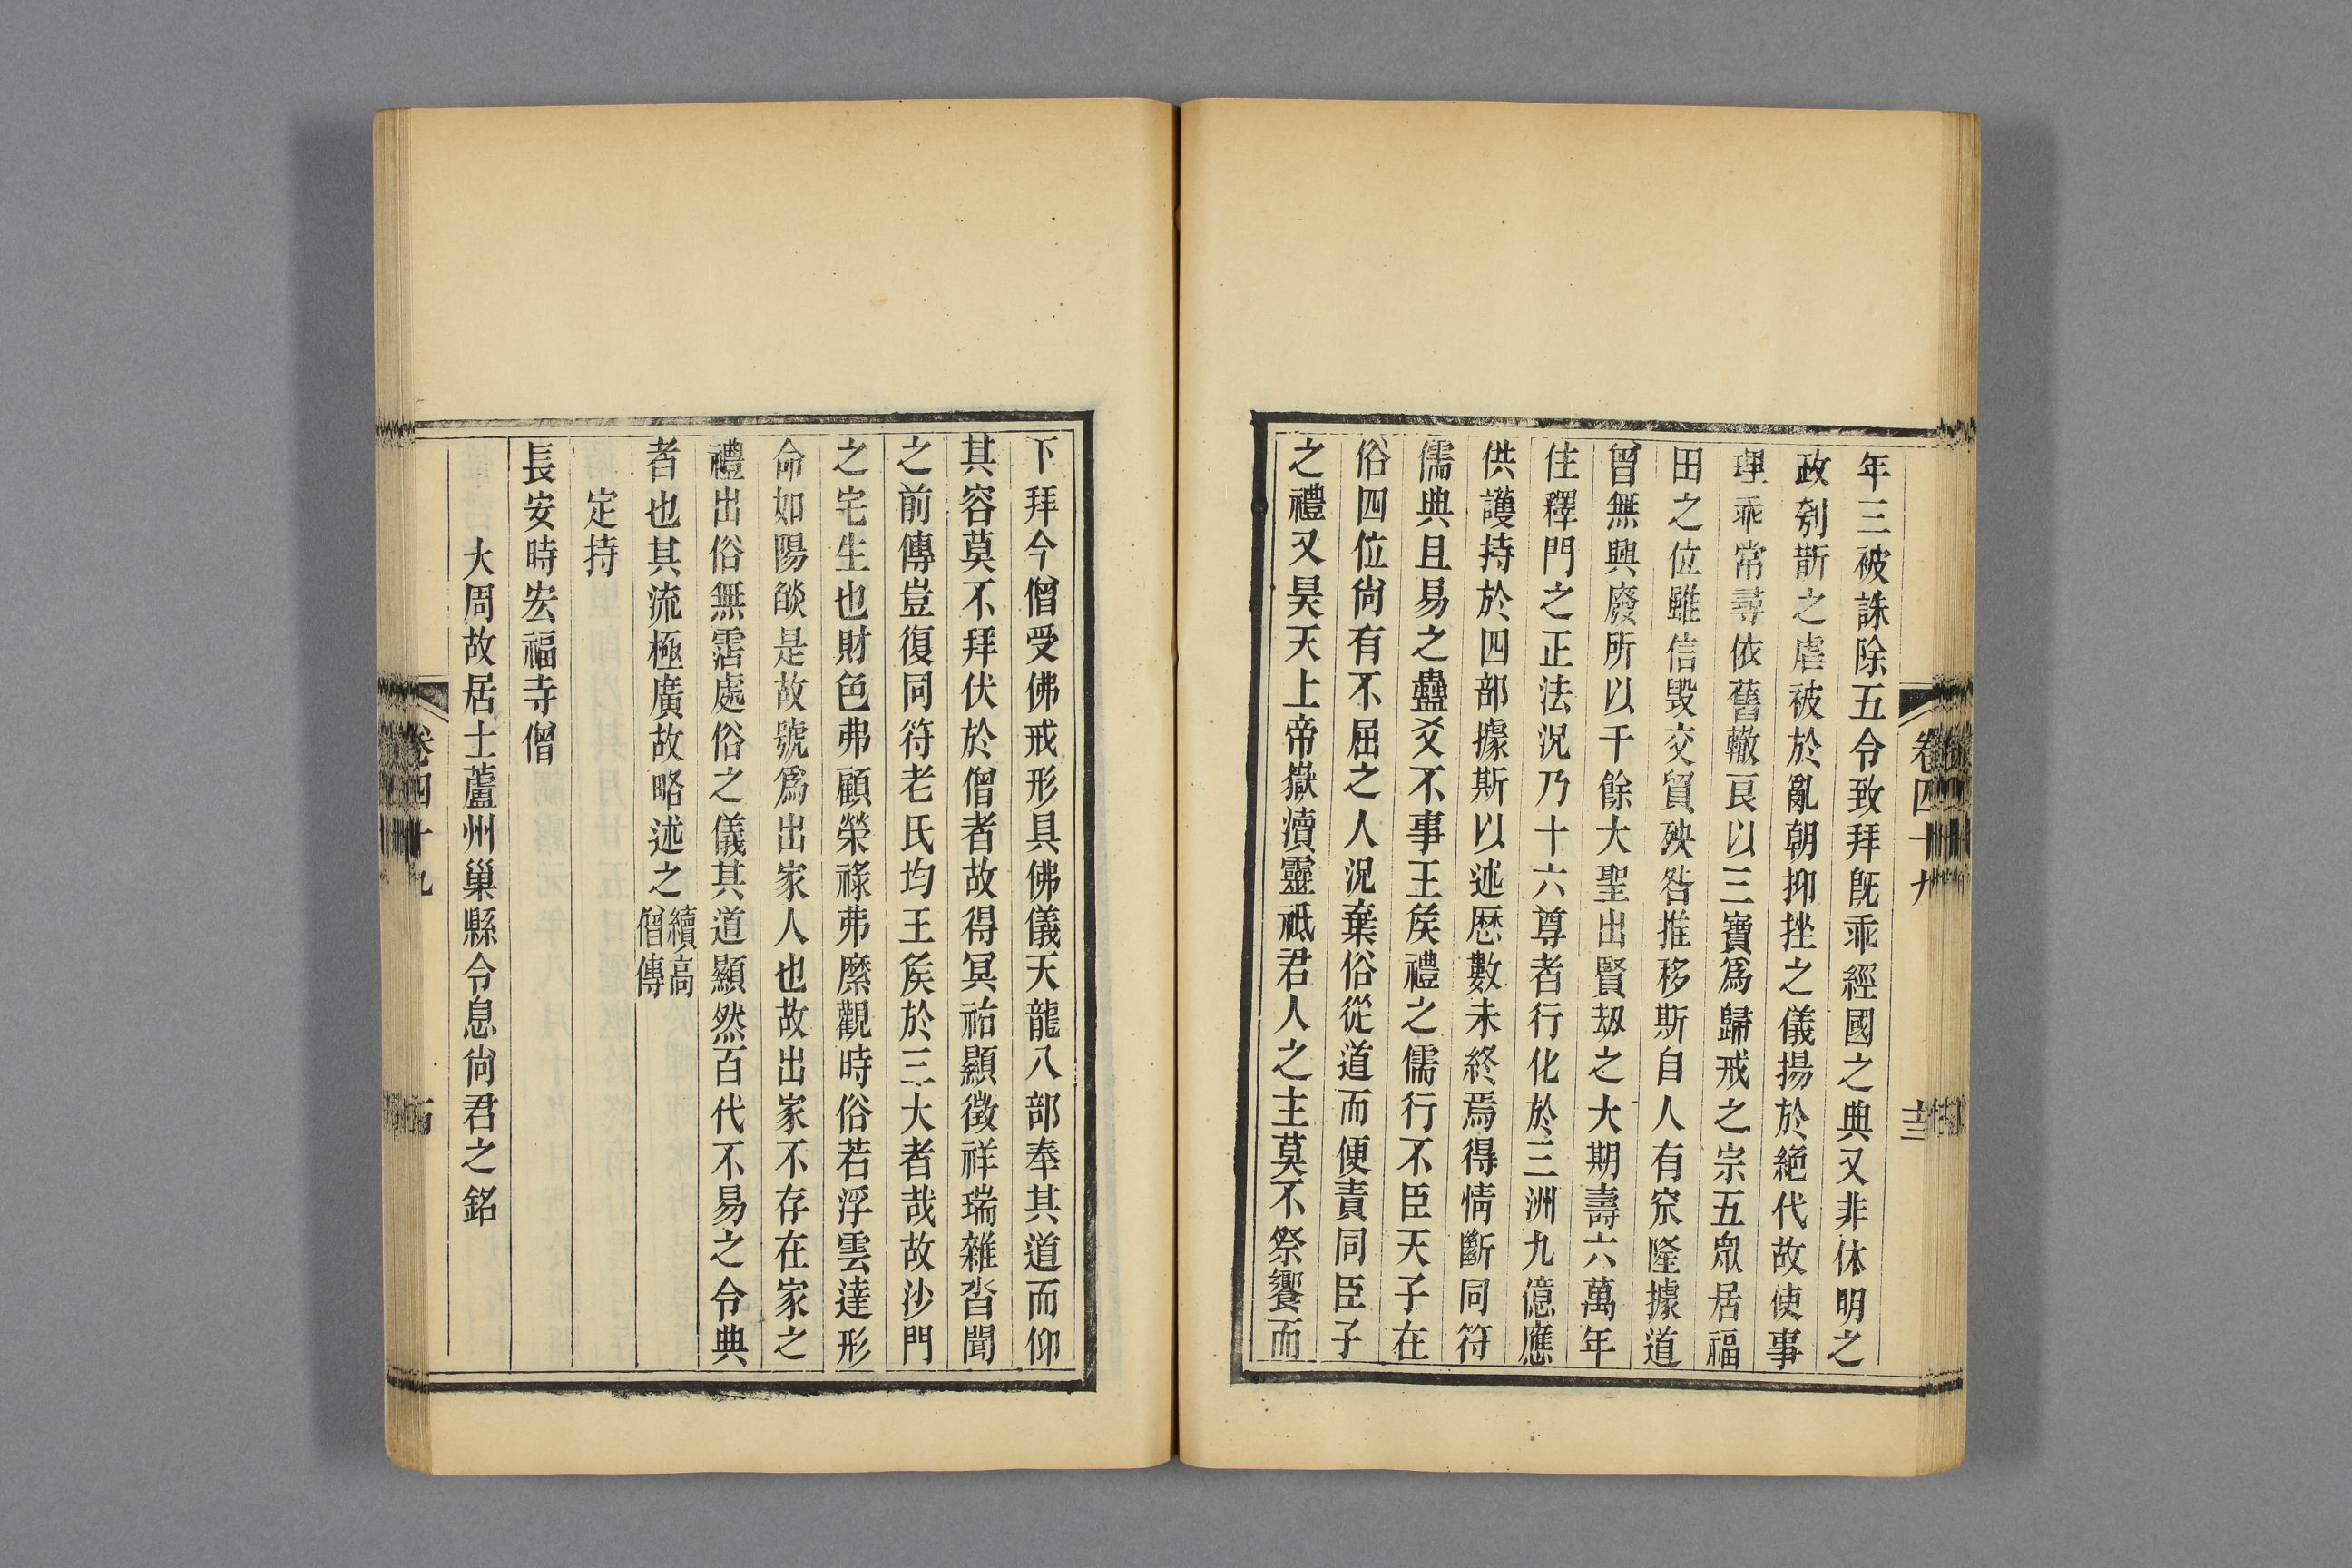 年三被誅除五令致拜既乖經國之典又非休明之
政刳斮之虐被於亂朝抑挫之儀揚於絕代故使事
理乖常尋依舊轍良以三寶爲歸戒之宗五眾居福
田之位雖信毀交貿殃咎推移斯自人有窊隆據道
曾無興廢所以千餘大聖出賢劫之大期壽六萬年
住釋門之正法況乃十六尊者行化於三洲九億應
供護持於四部據斯以述歷數未終焉得情斷同符
儒典且易之蠱爻不事王矦禮之儒行不臣天子在
俗四位尙有不屈之人況棄俗從道而便責同臣子
之禮又昊天上帝嶽瀆靈祇君人之主莫不祭饗而
卷四十九
十三
下拜今僧受佛戒形具佛儀天龍八部奉其道而仰
其容莫不拜伏於僧者故得冥祐顯徵祥瑞雜沓聞
之前傳豈復同符老氏均王矦於三大者哉故沙門
之宅生也財色弗顧榮祿弗縻觀時俗若浮雲達形
命如陽燄是故號爲出家人也故出家不存在家之
禮出俗無霑處俗之儀其道顯然百代不易之令典
者也其流極廣故略述之續高僧傳
定持
長安時宏福寺僧
大周故居士蘆州巢縣令息尙君之銘
卷四十九